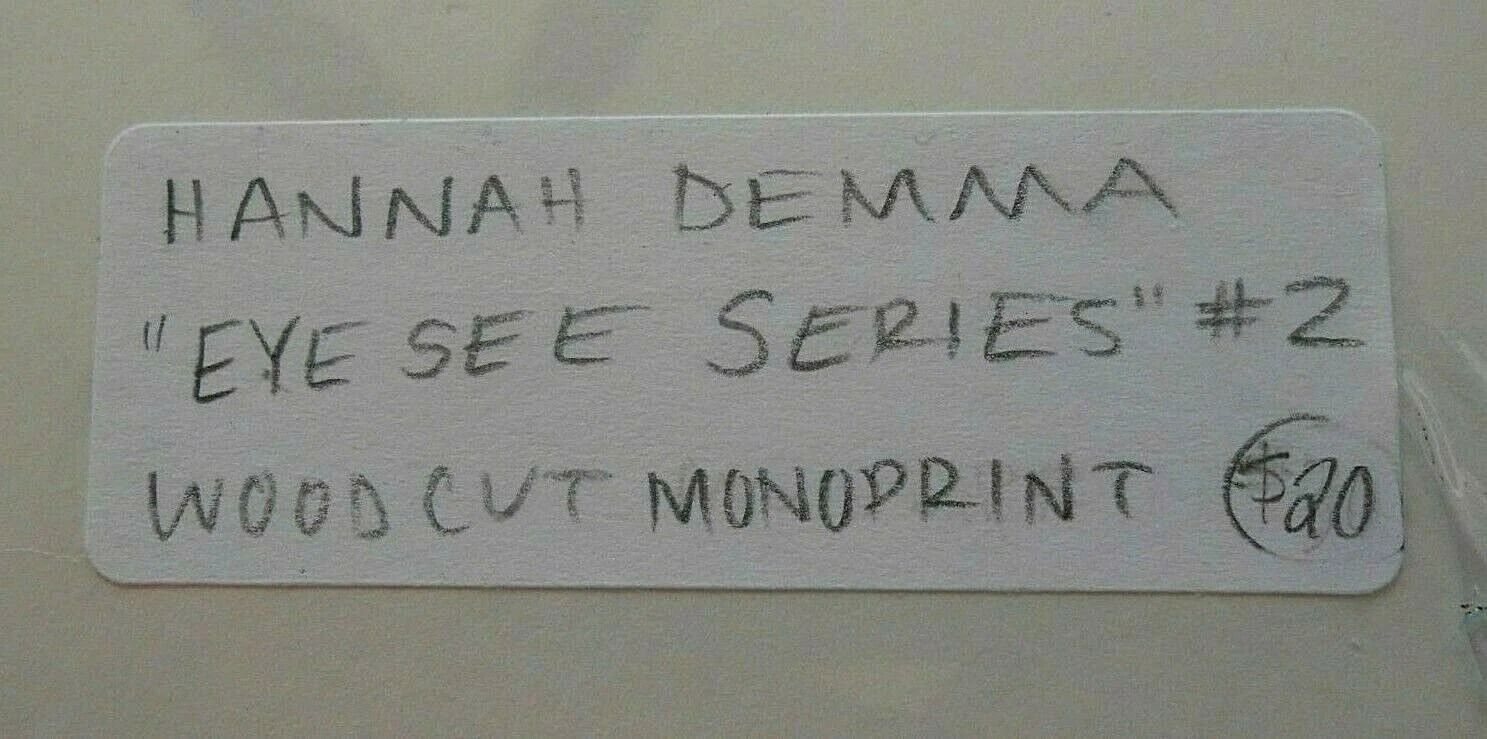 HANNAH DEMMA
"EYE SEE SERIES" #2
WOODCUT MONOPRINT $20